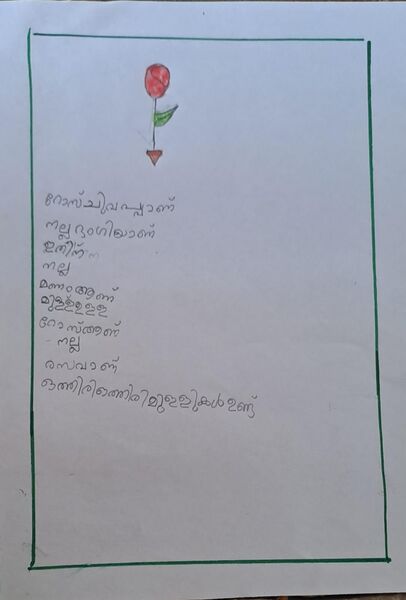 റോസ്ചുവപ്പാണ്
നല്ല ഭംഗിയാണ്
ഇതിന്ന
നല്ല
മണംആണ്
മുള്ളുള്ള
റോസ്ആണ്
നല്ല
രസവാണ്
ഒത്തിരിഒത്തിരിമുള്ളികൾ ഉണ്ട്